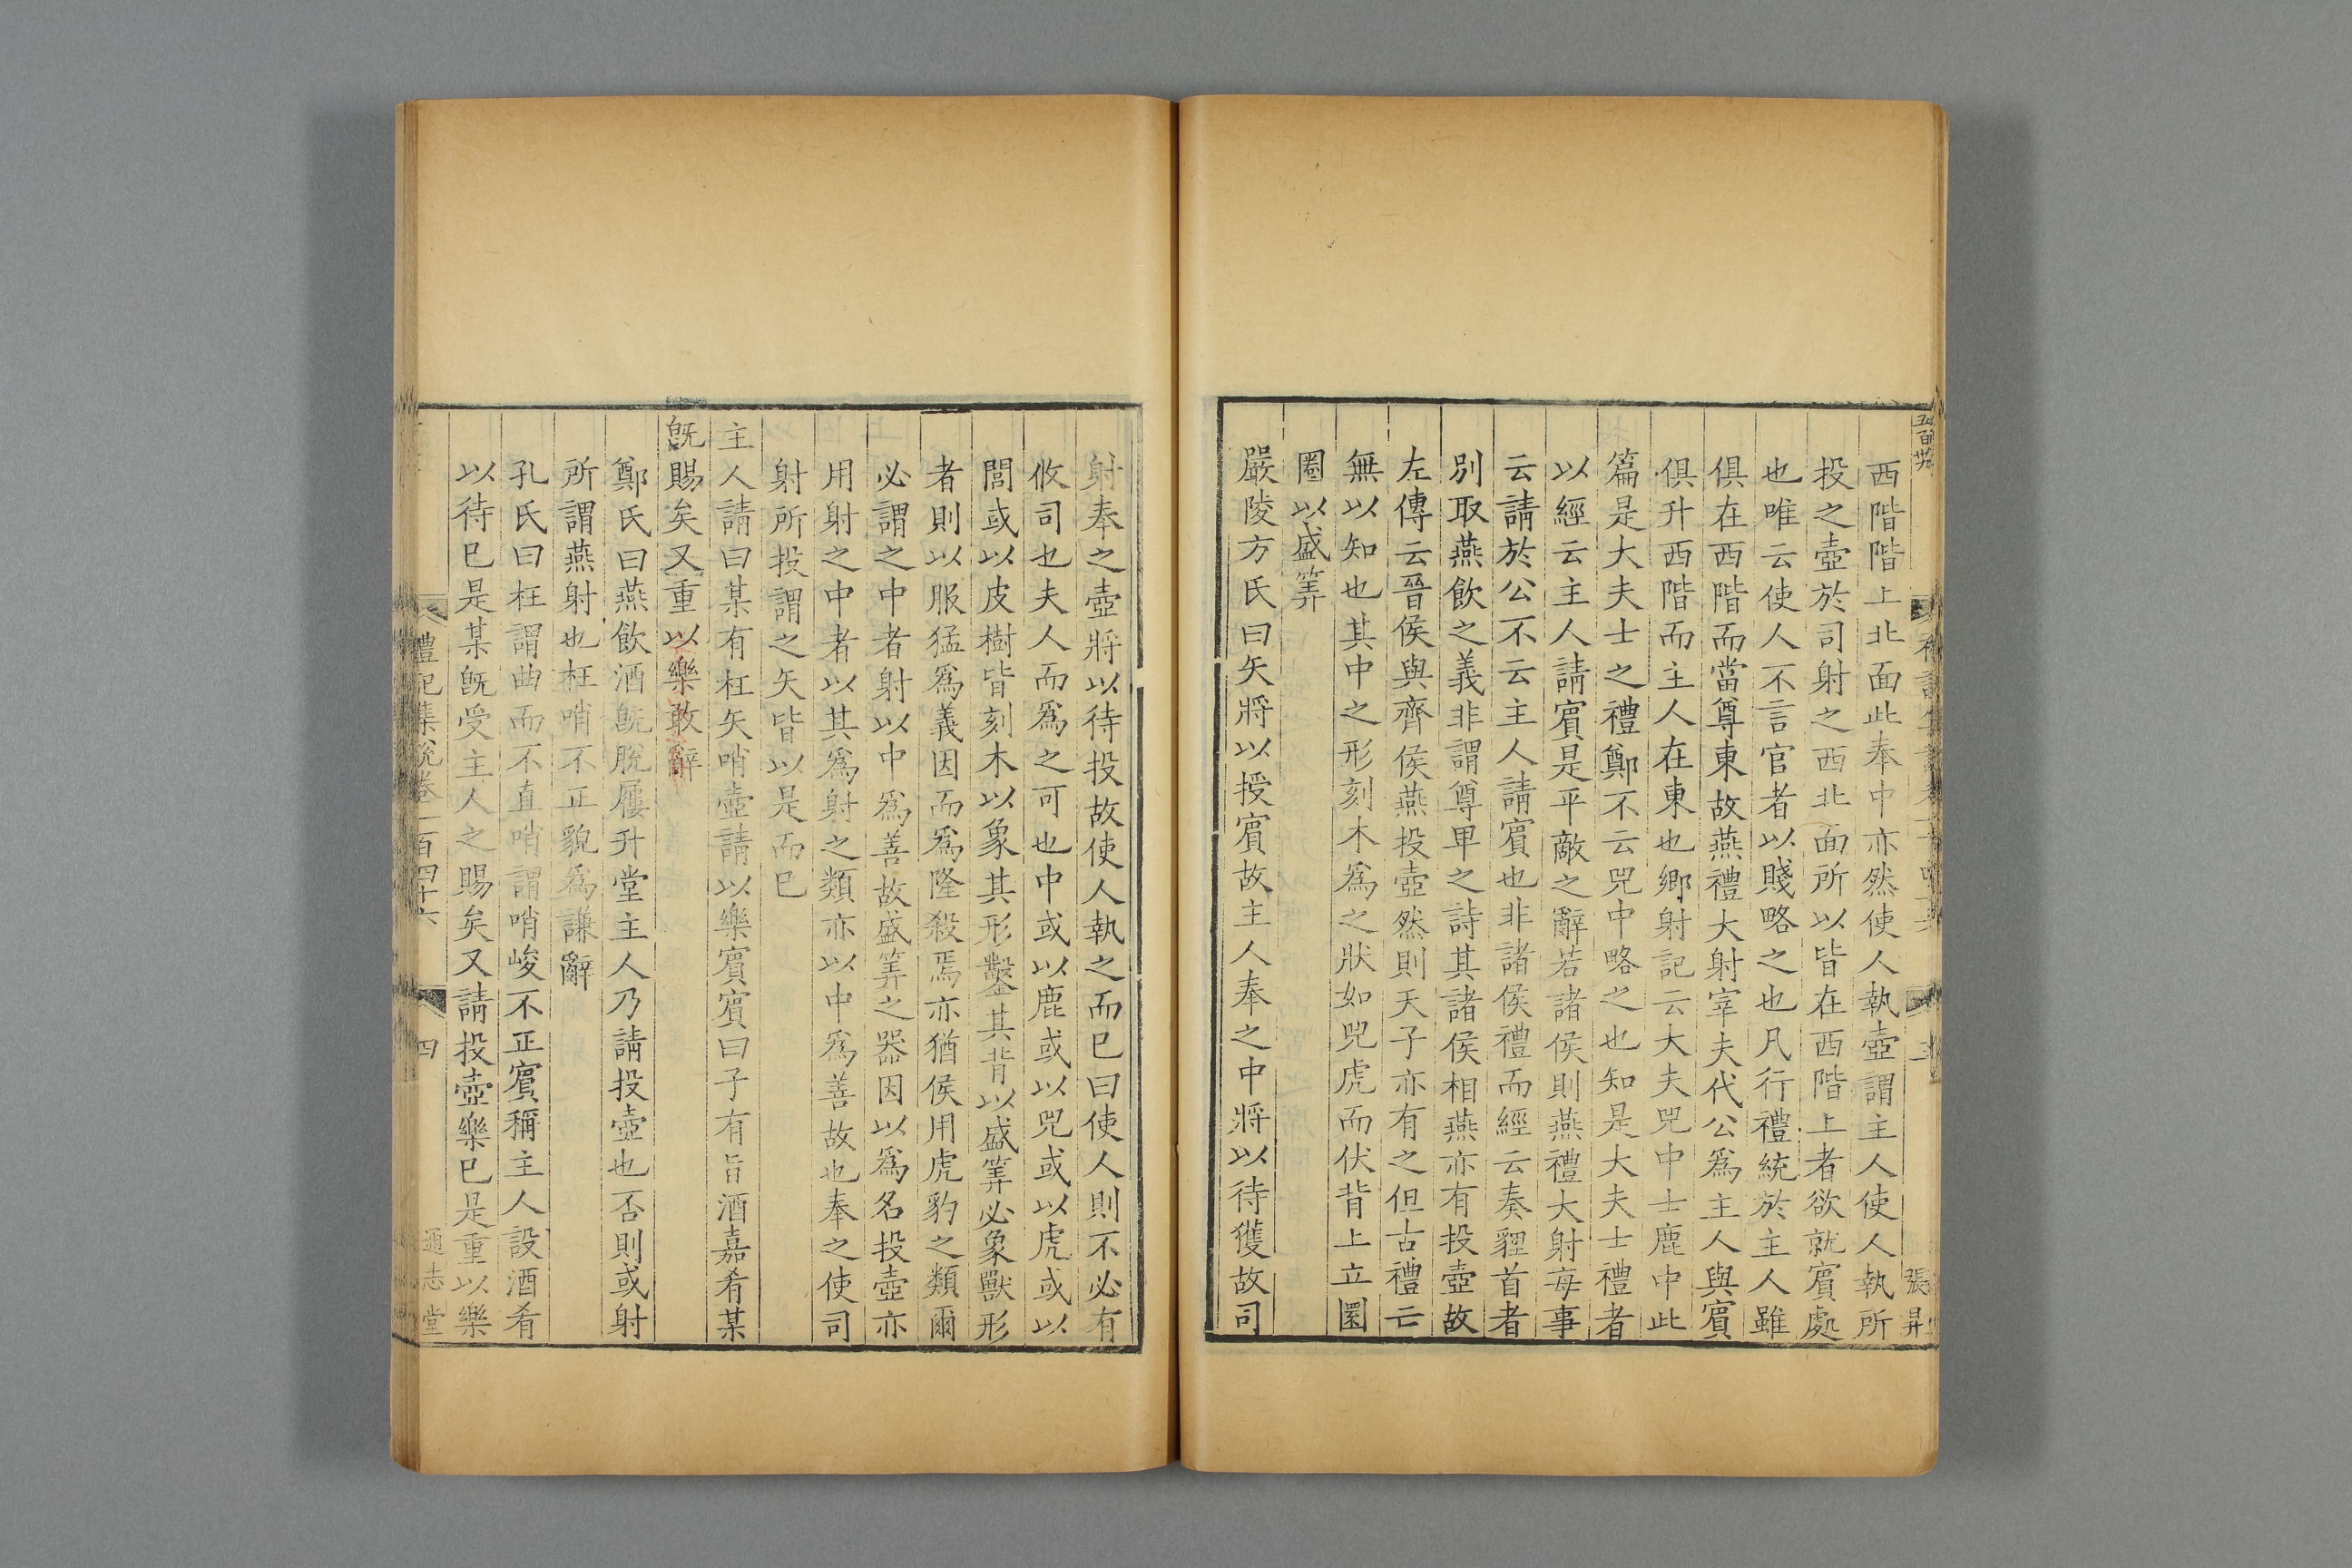 西階階上北面此奉中亦然使人執壺謂主人使人執所
投之壺於司射之西北面所以皆在西階上者欲就賔處
也唯云使人不言官者以賤略之也凡行禮統於主人雖
俱在西階而當尊東故燕禮大射宰夫代公爲主人與賔
俱升西階而主人在東也鄉射記云大夫兕中士鹿中此
篇是大夫士之禮鄭不云兕中略之也知是大夫士禮者
以經云主人請賔是平敵之辭若諸侯則燕禮大射每事
云請於公不云主人請賔也非諸侯禮而經云奏貍首者
別取燕飲之義非謂尊卑之詩其諸侯相燕亦有投壺故
左傳云晉侯與齊侯燕投壺然則天子亦有之但古禮亡
無以知也其中之形刻木爲之狀如兕虎而伏背上立圜
圈以盛筭
嚴陵方氏曰矢將以授賔故主人奉之中將以待獲故司
張昇
射奉之壺將以待投故使人執之而巳曰使人則不必有
攸司也夫人而爲之可也中或以鹿或以兕或以虎或以
閭或以皮樹皆刻木以象其形鑿其背以盛筭必象獸形
者則以服猛爲義因而爲隆殺焉亦猶侯用虎豹之類爾
必謂之中者射以中爲善故盛筭之器因以爲名投壺亦
用射之中者以其爲射之類亦以中爲善故也奉之使司
射所投謂之矢皆以是而巳
主人請曰某有枉矢哨壺請以樂賔賔曰子有旨酒嘉肴某
旣賜矣又重以樂敢辭
鄭氏曰燕飲酒旣脫屨升堂主人乃請投壺也否則或射
所謂燕射也枉哨不正貌爲謙辭
孔氏曰枉謂曲而不直哨謂哨峻不正賔稱主人設酒肴
以待巳是某旣受主人之賜矣又請投壺樂巳是重以樂
禮記集說卷一百四十六
四
通志堂